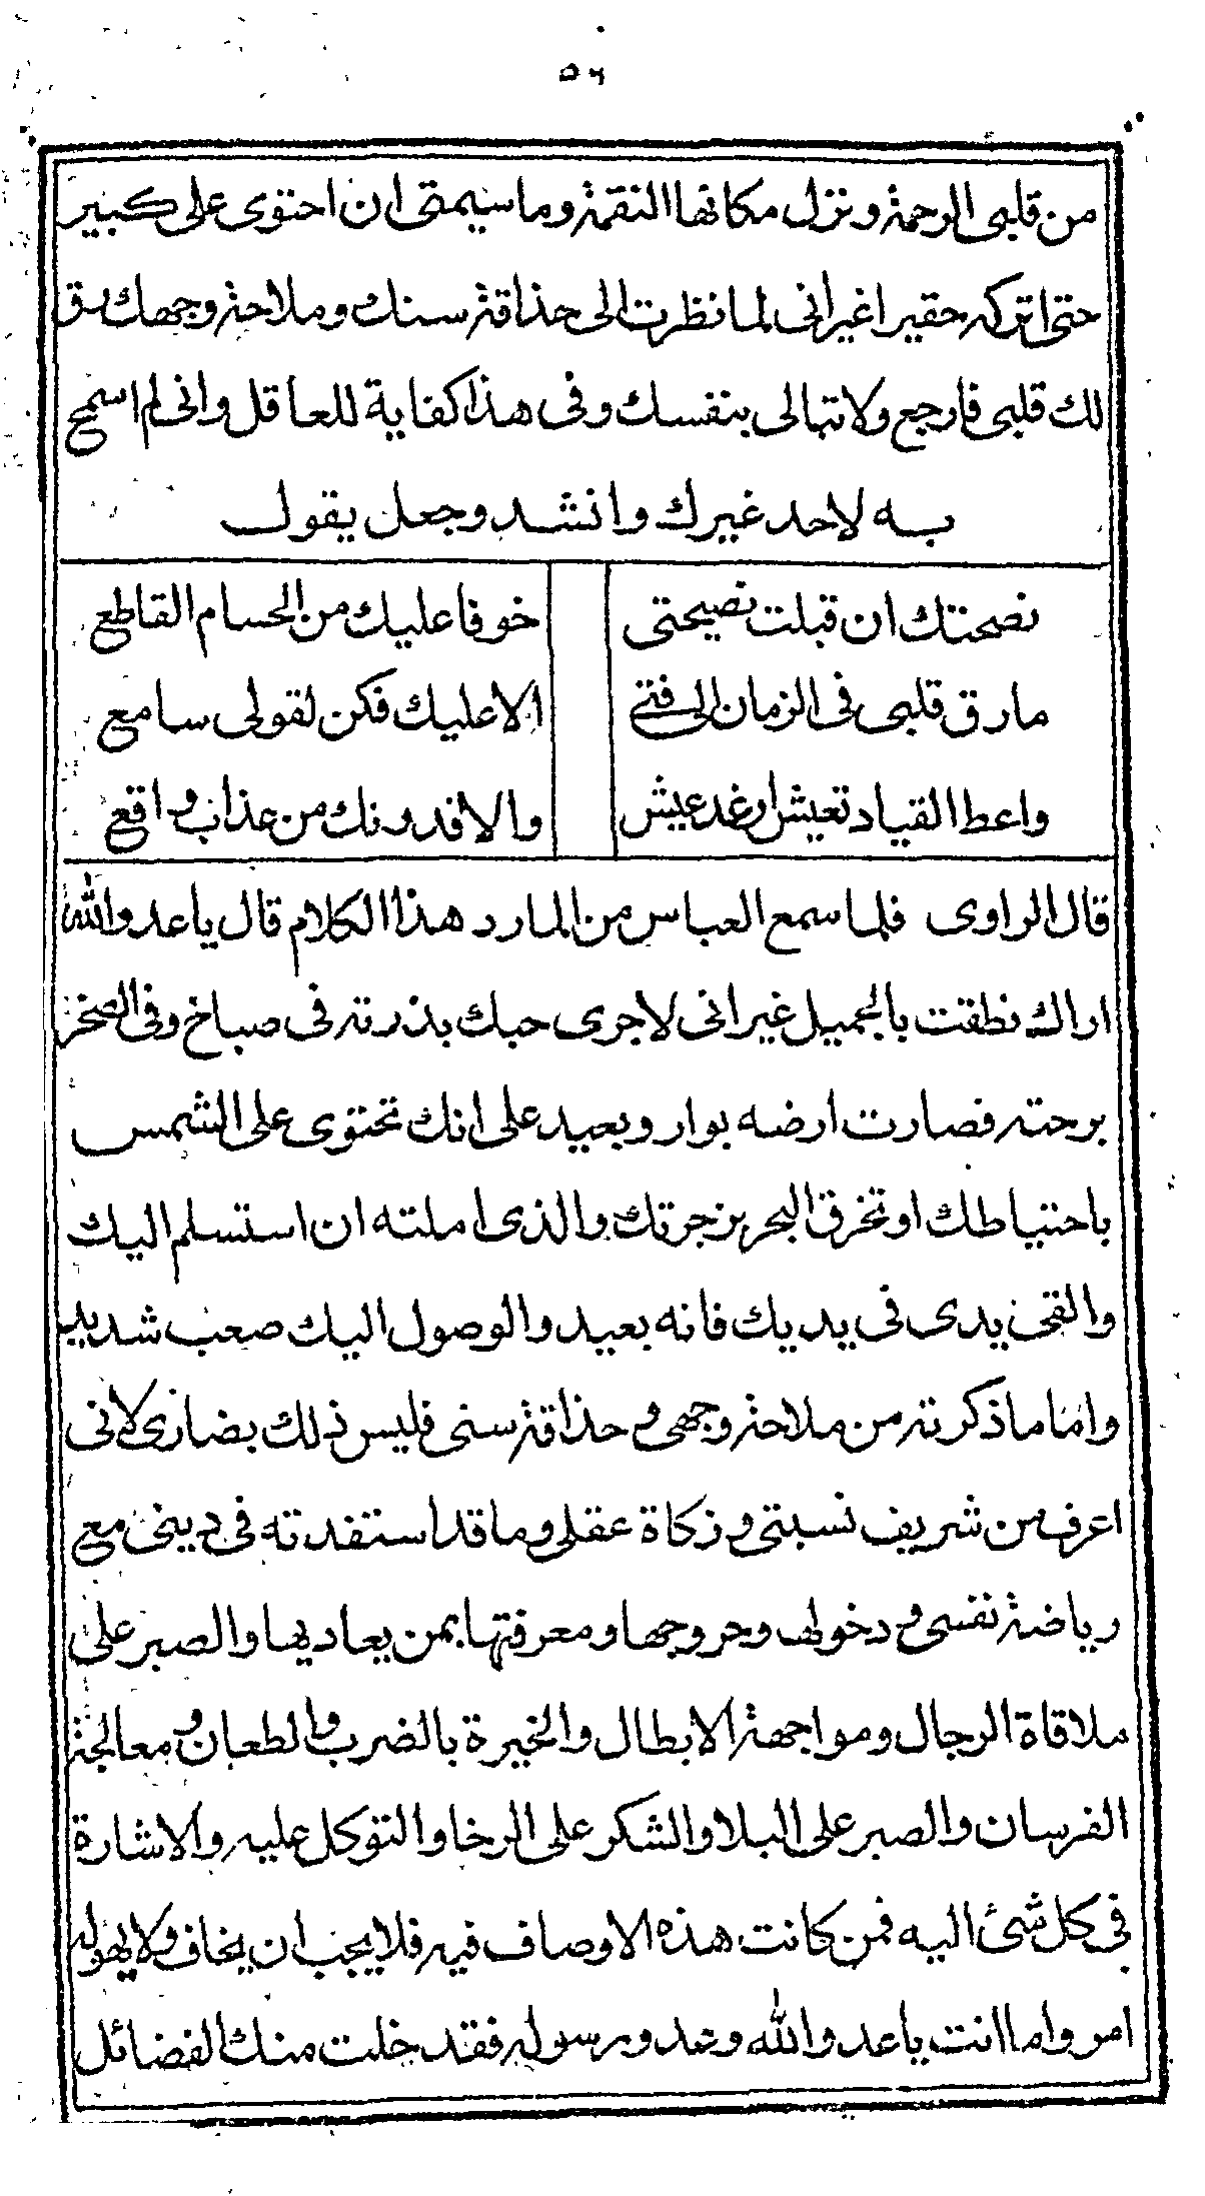 ٥٦
من قلبى الرحمة وتزل مكانها النقمة وما سيمتى ان احتوى على كبير
حتى اتركه حقيرا غير انى لما نظرت الى حذاقة سنك وملاحة وجهك رق
لك قلبى فارجع ولا تبالى بنفسك وفى هذا كفاية للعاقل وانى لم اسمح
به لاحد غيرك وانشد وجعل يقول
نصحتك ان قبلت نصيحتى خوفا عليك من الحسام القاطع
مارق قلبى فى الزمان الى فتى الا عليك فكن لقولى سامع
واعط القياد تعيش ارغد عيش والا فدونك من عذاب واقع
قال الراوى فلما سمع العباس من المارد هذا الكلام قال يا عدو الله
اراك نطقت بالجميل غير انى لا جرى حبك بذرته فى صباخ وفى الصخر
برحته فصارت ارضه بوار وبعيد على انك تحتوى على الشمس
باحتياطك او تخرق البحر بزجرتك والذى املته ان استسلم اليك
والقى يدى فى يديك فانه بعيد والوصول اليك صعب شديد
واما ما ذكرته من ملاحة وجهى و حذاقة سنى فليس ذلك بضارى لانى
اعرف من شريف نسبتى و زكاة عقلى وما قد استفدته فى دينى مع
رياضة نفسى و دخولها وخروجها ومعرفتها بمن يعاديها والصبر على
ملاقاة الرجال ومواجهة الابطال والخيرة بالضرب والطعان و معالجة
الفرسان والصبر على البلا والشكر على الرخا والتوكل عليه والاشارة
فى كل شئ اليه فمن كانت هذه الاوصاف فيه فلا يجب ان يخاف ولا يهوله
امر واما انت يا عدو الله وعدو رسوله فقد خلت منك الفضائل